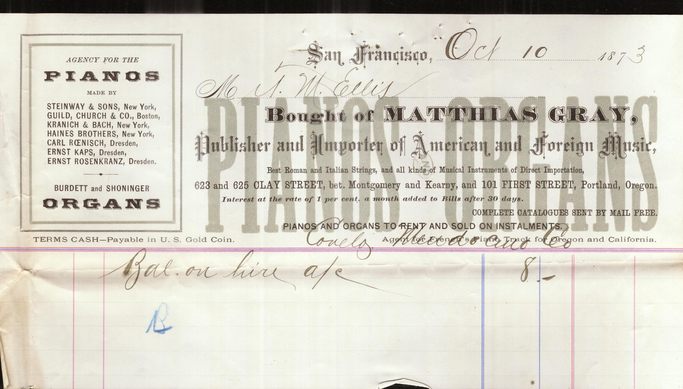 AGENCY FOR THE
PIANOS
MADE BY
STEINWAY & SONS, New York,
GUILD, CHURCH & CO., Boston,
KRANICH & BACH, New York,
HAINES BROTHERS, New York,
CARL RŒNISCH, Dresden,
ERNST KAPS, Dresden,
ERNST ROSENKRANZ, Dresden.
BURDETT and SHONINGER
ORGANS
TERMS CASH—Payable in U. S. Gold Coin.
San Francisco, Oct 10 1873
M. Ellis
PIANOS ORGANS
Bought of MATTHIAS GRAY,
Publisher and Importer of American and Foreign Music,
Best Roman and Italian Strings, and all kinds of Musical Instruments of Direct Importation,
623 and 625 CLAY STREET, bet. Montgomery and Kearny, and 101 FIRST STREET, Portland, Oregon.
Interest at the rate of 1 per cent. a month added to Bills after 30 days.
COMPLETE CATALOGUES SENT BY MAIL FREE.
PIANOS AND ORGANS TO RENT AND SOLD ON INSTALMENTS.
Agency for Piano Truck for Oregon and California.
Covelo Mendocino Co
Bal. on hire a/c 8.–